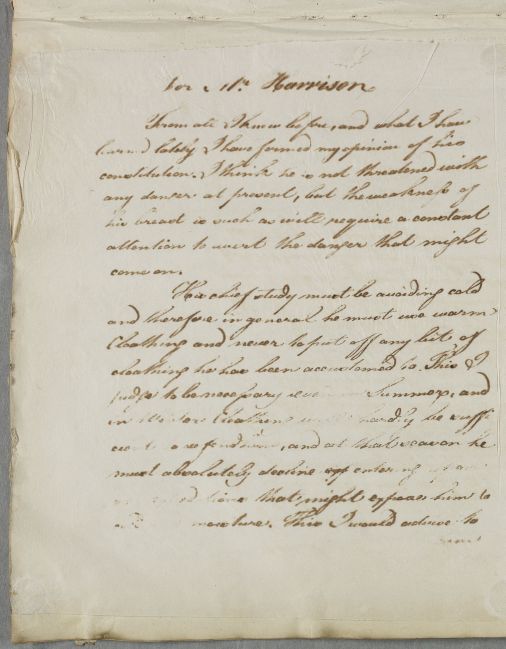 for Mr. Harrison
From all I knew before, and what I have
learned lately I have formed my opinion of his
constitution. I think he is not threatened with
any danger at present, but the weakness of
his breast is such as will require a constant
attention to avert the danger that might
come on.
His chief study must be avoiding cold
and therefore in general he must use warm
Cloathing and never to put off any bit of
cloathing he has been accustomed to. This I
judge to be necessary even in Summer, and
in Winter Cloathing will hardly be suffi
cient and at that season he
must absolutely decline entering
that might expose him to
moisture. This I would advise to